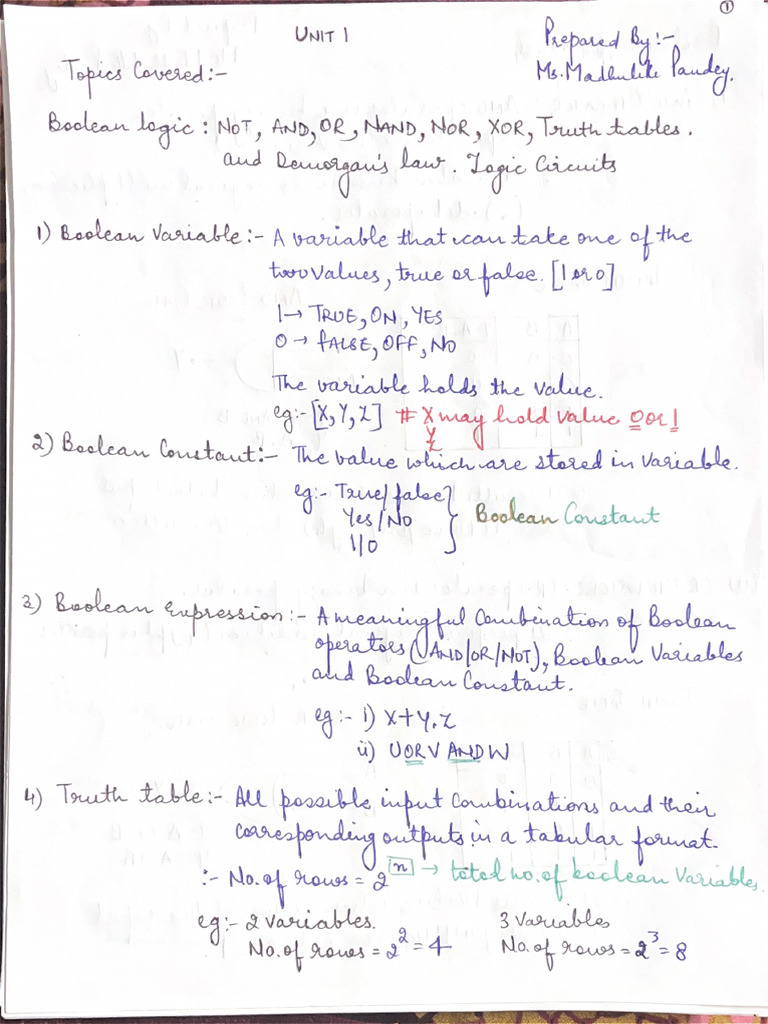 1
UNIT 1
Prepared By:-
Ms. Madhulika Pandey.
Topics Covered:-
Boolean logic: NOT, AND, OR, NAND, NOR, XOR, Truth tables.
and Demorgan's law. Logic Circuits
1) Boolean Variable:- A variable that can take one of the
two values, true or false. [1 or 0]
1→ TRUE, ON, YES
0 → fALSE, OFF, NO
The variable holds the value.
eg:- [X, Y, Z] # X may hold value 0 or 1
Y
Z
2) Boolean Constant:- The value which are stored in variable.
eg:- True/false
Yes/No
1/0
} Boolean Constant
3) Boolean Expression:- A meaningful Combination of Boolean
operators (AND/OR/NOT), Boolean Variables
and Boolean Constant.
eg:- i) X+Y.Z
ii) U OR V AND W
4) Truth table:- All possible input Combinations and their
corresponding outputs in a tabular format.
:- No. of rows = 2^n → total no. of boolean Variables.
eg:- 2 variables. 3 variables
No. of rows = 2^2 = 4 No. of rows = 2^3 = 8